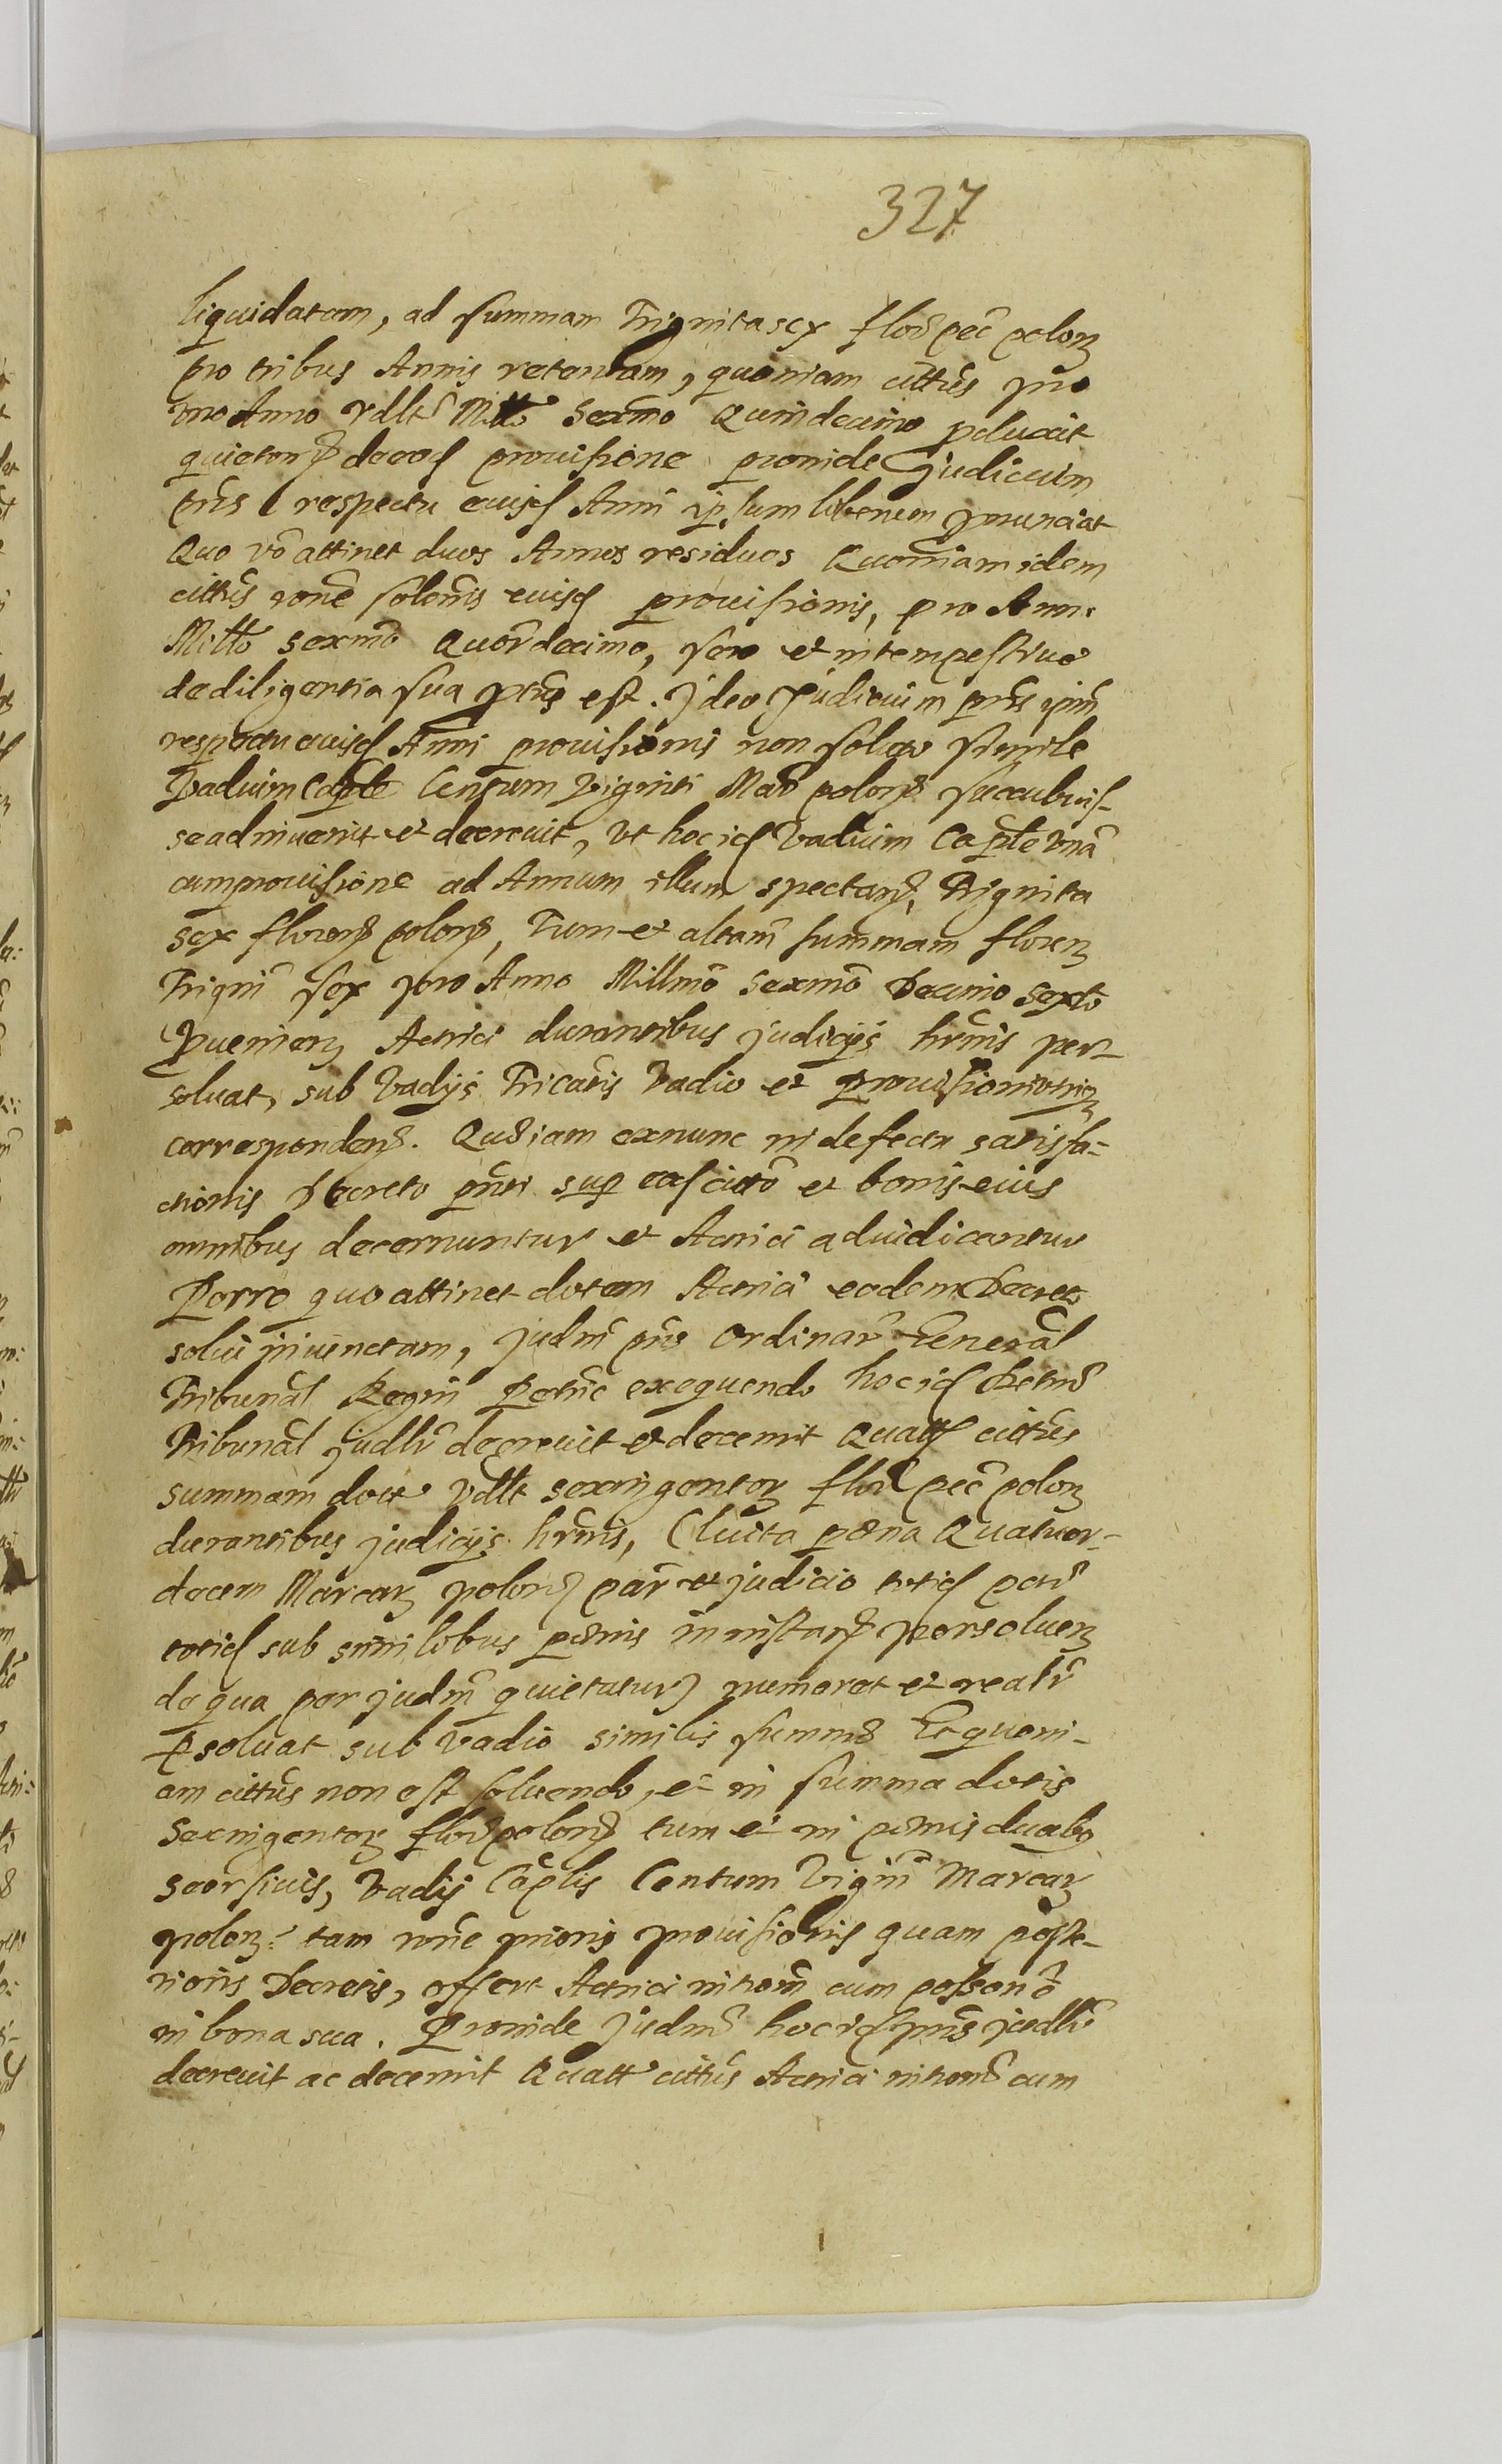 327
liquidatam, ad summam Triginta sex flor̃ pec̃ polon̄
pro tribus Annis retentam, quoniam cittũs pro
uno Anno vdltʼ Milło Sexm̃o Quindecimo poluxit
quieton̄ deeadꝫ prouisione proinde Judicium
pñs respectu euisdꝫ Anni ipsum liberum ꝓnunciat
Quo vō attinet duos Annos residuos Quoniam idem
cittũs rōne solõnis euisdꝫ prouisionis, pro Anno
Milło Sexmõ Quor̃decimo, sero et intempestiue
de diligentia sua est. Ideo Judicium pñs ipm̃
respectu euisdꝫ Anni prouisionis non solutæ simile
Vadium Cap̃le Centum Viginti Mar̃ polon̄ succubuis-
se adinuenit et decreuit, vt hoc idꝫ Vadium Cap̃le vnā
cum prouisione ad Annum illum spectan̄, Triginta
sex floren̄ polon̄, Tum et altam̃ summam floren̄
Trigin̄ sex pro Anno Millmõ Sexmõ Decimo Sexto
ꝓuenien̄ Actrici durantibus judicijs hr̃nis per-
soluat, sub Vadijs Tricatis Vadio et prouisioni
corresponden̄. Quæ iam exnunc in defectu satisfa-
ctionis Decreto pn̄ti sup eodꝫ cittō et bonis eius
omnibus decernuntur et Actrici adiudicantur
Porro quo attinet dotem Actrici eodem Decreto
solui iniunctam, Judm̃ pñs Ordinar̃ Generãl
Tribunãl Regni exequendo hoc idꝫ Decretũ
Tribunãl judlr̃ decreuit et decernit Quatʼ cittũs
summam dotis vdlt sexingentor̄ flor̃ pec̃ polon̄
durantibus judicijs hr̃nis, (luita pœna Quatuor-
decem Marcar̄ polon̄ par̃ et judicio totidꝫ
totidꝫ sub similibus pœnis in instan̄ persoluen̄
de qua per judm̃ quietatur) numeret et realr̃
ꝑsoluat sub vadio similis summæ Et quoni-
am cittũs non est soluendo, et in summa dotis
Sexingentor̄ flor̃ polon̄ tum et in pœnis duabꝯ
seorsiuis, Vadij Cap̃lis Centum Vigin̄ Marcar̄
polon̄: tam rōne prioris prouisionis quam poste-
rioris Decretis, offert Actrici introm̃ cum possonẽ
in bona sua. Proinde Judm̃ hoc idꝫ pñs judlr̃
decreuit ac decernit Quatt cittũs Actrici intromẽ cum